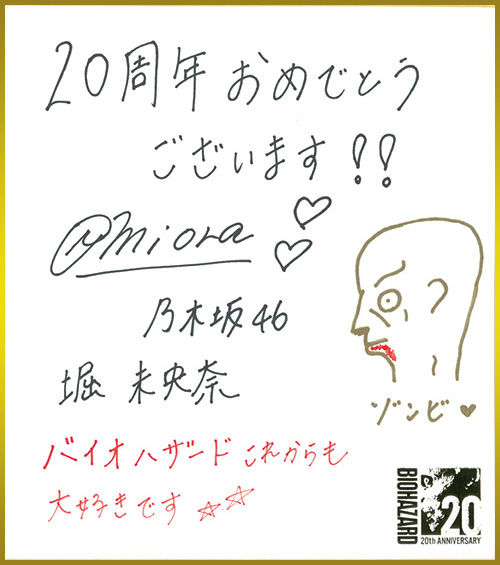 20周年おめでとう
ございます!!
@miona
乃木坂46
堀 未央奈
ゾンビ♥
バイオハザードこれからも
大好きです☆☆
BIOHAZARD
20
20th ANNIVERSARY